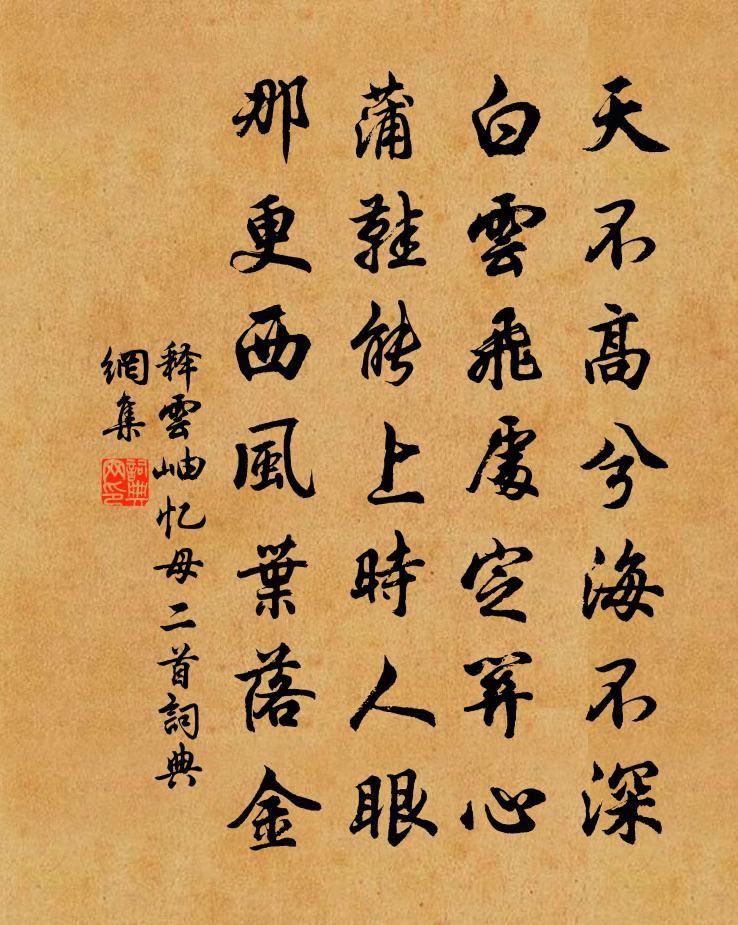 天不高兮海不深
白雲飛處定關心
蒲鞋能上時人眼
那更西風葉落金
释雲岫忆母二首詞典
網集
詞典
网印